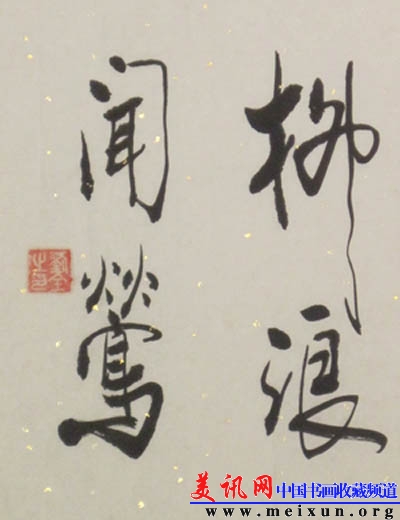 柳浪
闻鶯
美讯网 中国书画收藏频道
www.meixun.org